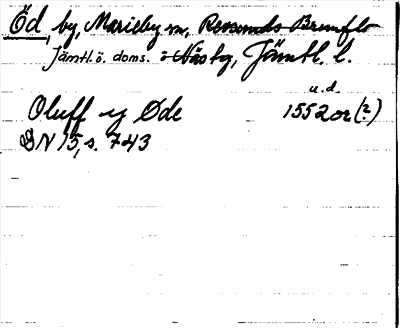 Öd, by, Marieby sn, Revsunds Brunflo
Jämtl. ö. doms. o Näs tg, Jämtl. l.
u.d.
Oluff y Øde 1552 or (?)
DN 15, s. 743